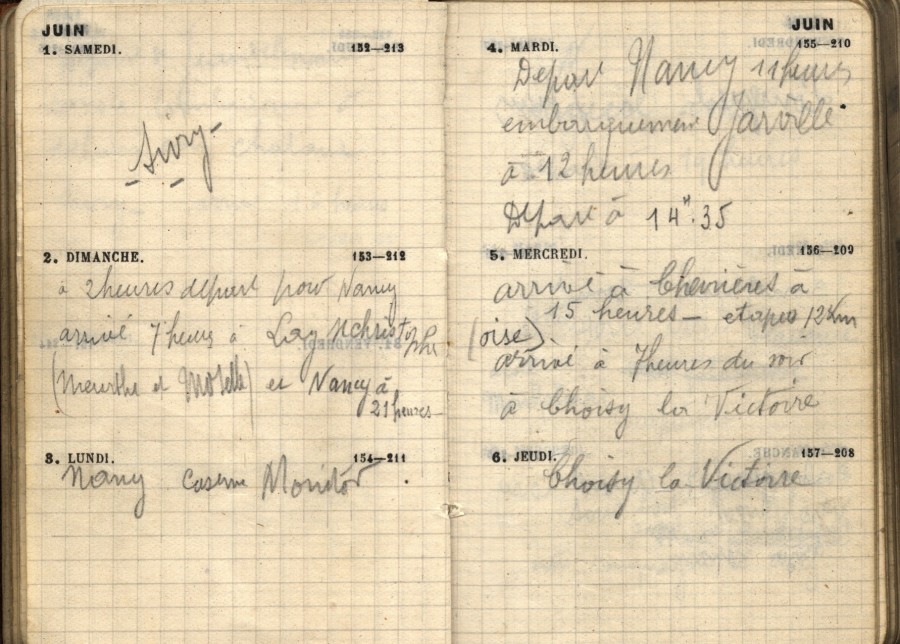 JUIN
1. SAMEDI. 152—213
Sivry
2. DIMANCHE. 153—212
à 2 heures départ pour Nancy
arrivé 7 heures à Lay St Christophe
(Meurthe et Moselle) et Nancy à
21 heures
3. LUNDI. 154—211
Nancy caserne
JUIN
4. MARDI. 155—210
Départ Nancy 11 heures
embarquement Jarville
à 12 heures
Départ à 14H.35
5. MERCREDI. 156—209
arrivé à Chevrières à
15 heures — etapes 12 km
(oise).
arrivé à 7 heures du soir
à Choisy la Victoire
6. JEUDI. 157—208
Choisy la Victoire